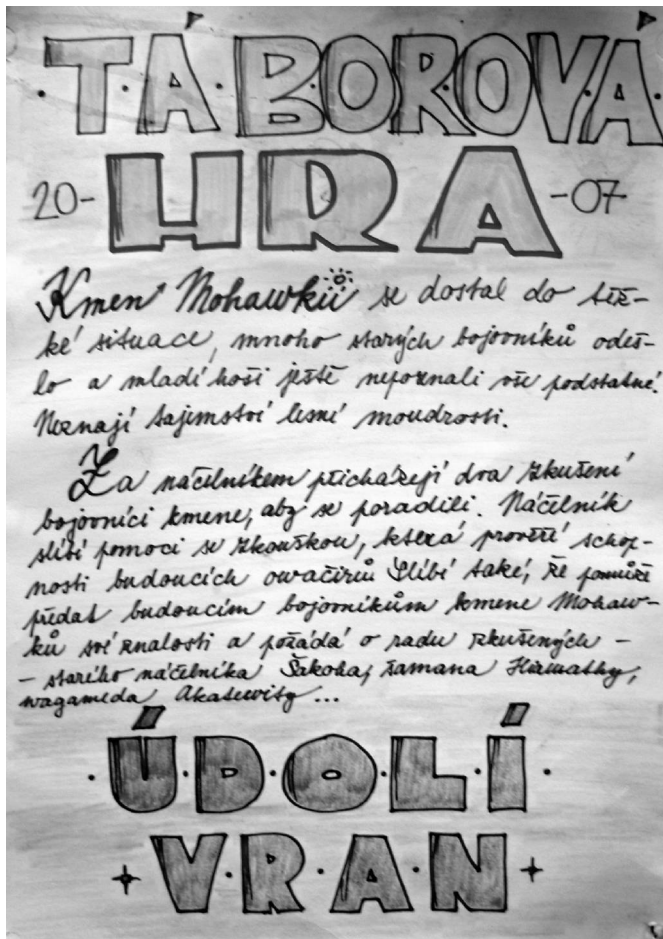 TÁBOROVÁ
20- HRA -07
Kmen Mohawků se dostal do těž-
ké situace, mnoho starých bojovníků odeš-
lo a mladí hoši ještě nepoznali vše podstatné.
Neznají tajemství lesní moudrosti.
Za náčelníkem přicházejí dva zkušení
bojovníci kmene, aby se poradili. Náčelník
slíbí pomoci se zkouškou, která prověří schop-
nosti budoucích owačirů Slíbí také, že pomůže
předat budoucím bojovníkům kmene Mohaw-
ků své znalosti a požádá o radu zkušených -
- starého náčelníka Šakoha, šamana Hiawathy,
wagameda Akatewity...
ÚDOLÍ
VRAN